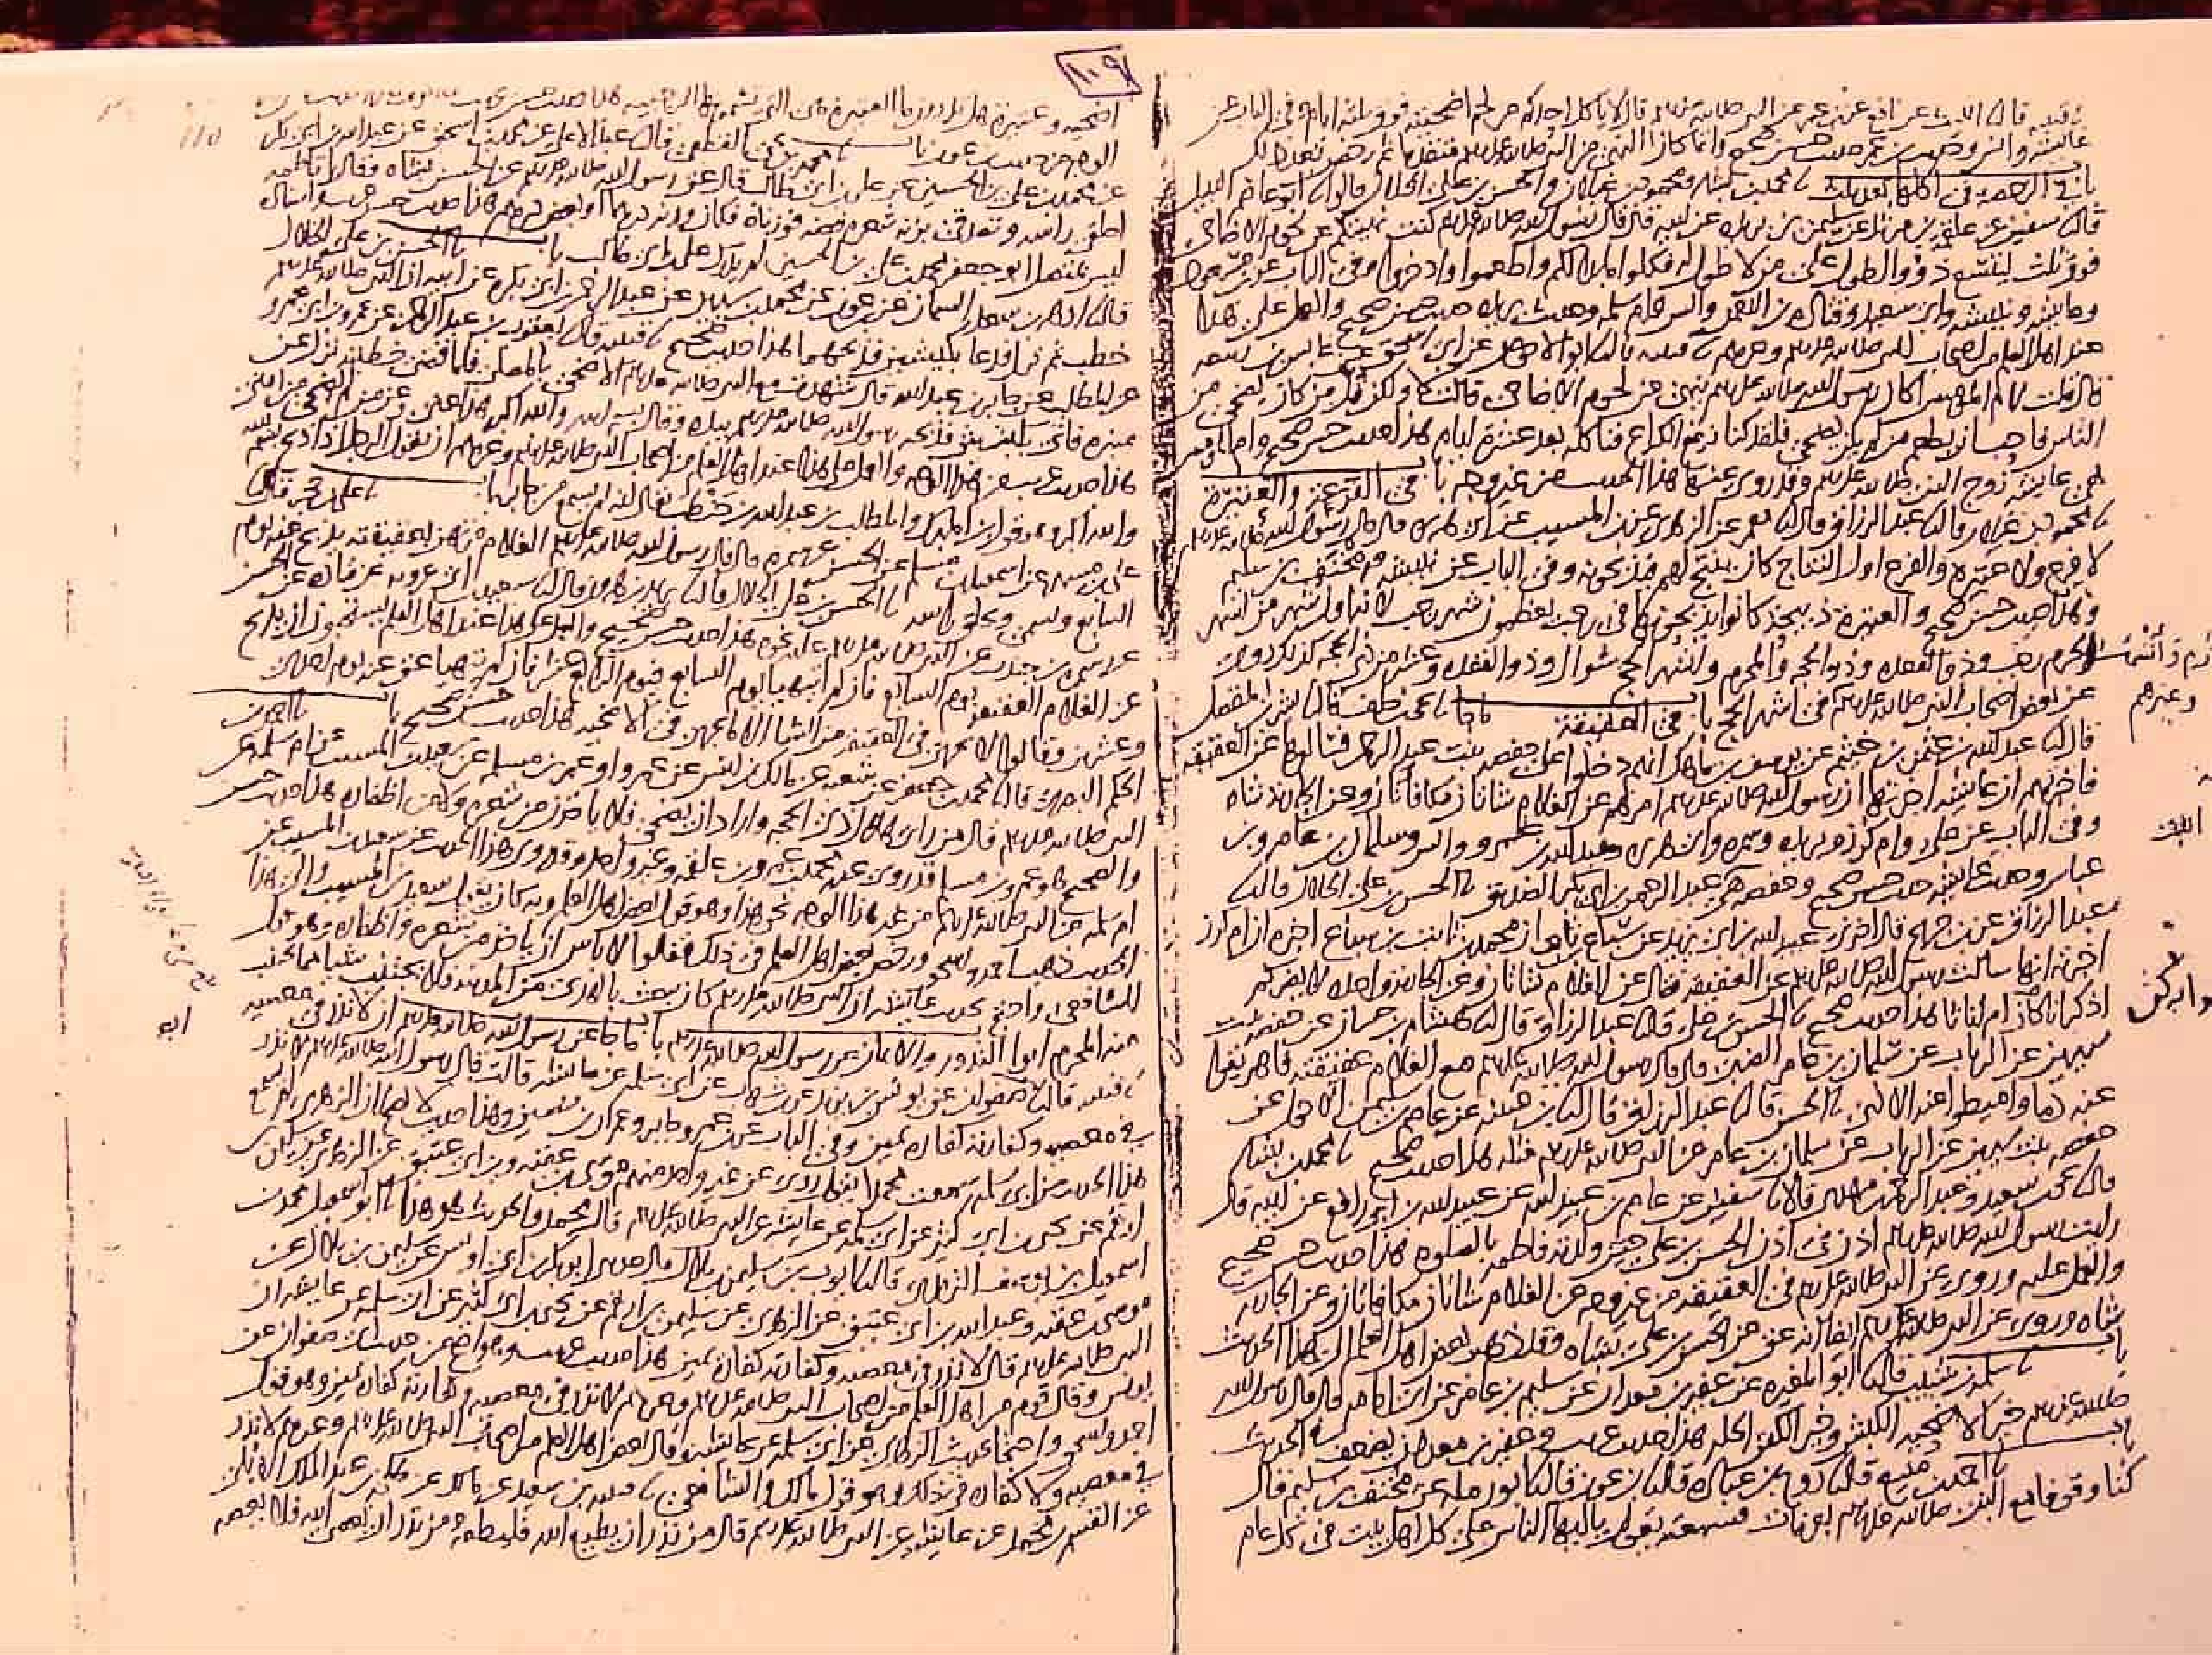 قتيبة قال الليث عن نافع عن بن عمر عن النبي صلى الله عليه وسلم قال لا ياكل احدكم من لحم اضحيته فوق ثلثة ايام وفي الباب عن
عايشة وانس وحديث بن عمر حديث حسن صحيح وانما كان النهي من النبي صلى الله عليه وسلم متقدما ثم رخص بعد ذلك
باب في الرخصة في اكلها بعد ثلث محمد بن بشار ومحمود بن غيلان والحسن بن علي الخلال قالوا ابو عاصم النبيل
قال سفين عن علقمة بن مرثد عن سليمن بن بريدة عن ابيه قال قال رسول الله صلى الله عليه وسلم كنت نهيتكم عن لحوم الاضاحي
فوق ثلث ليتسع ذوو الطول على من لا طول له فكلوا ما بدا لكم واطعموا وادخروا وفي الباب عن بن مسعود
وعايشة ونبيشة وابي سعيد وقتادة بن النعمن وانس وام سلمة وحديث بريدة حديث حسن صحيح والعمل على هذا
عند اهل العلم من اصحاب النبي صلى الله عليه وسلم وغيرهم قتيبة قال ابو الاحوص عن ابي اسحق عن عابس بن ربيعة
قال قلت لام المومنين اكان رسول الله صلى الله عليه وسلم ينهى عن لحوم الاضاحي قالت لا ولكن قل من كان يضحي من
الناس فاحب ان يطعم من لم يكن يضحي فلقد كنا نرفع الكراع فناكله بعد عشرة ايام هذا حديث حسن صحيح وام المومنين
هي عايشة زوج النبي صلى الله عليه وسلم وقد روي عنها هذا الحديث من غير وجه باب في الفرع والعتيرة
محمود بن غيلان قال عبد الرزاق قال معمر عن الزهري عن بن المسيب عن ابي هريرة قال قال رسول الله صلى الله عليه وسلم
لا فرع ولا عتيرة والفرع اول النتاج كان ينتج لهم فيذبحونه وفي الباب عن نبيشة ومخنف بن سليم
وهذا حديث حسن صحيح والعتيرة ذبيحة كانوا يذبحونها في رجب يعظمون شهر رجب لانه اول شهر من اشهر
الحرم رجب وذو القعدة وذو الحجة والمحرم واشهر الحج شوال وذو القعدة وعشر من ذي الحجة كذلك روي
عن بعض اصحاب النبي صلى الله عليه وسلم في اشهر الحج باب في العقيقة يحيى بن خلف قال بشر بن المفضل
قال عبد الله بن عثمن بن خثيم عن يوسف بن ماهك انهم دخلوا على حفصة بنت عبد الرحمن فسالوها عن العقيقة
فاخبرتهم ان عايشة اخبرتها ان رسول الله صلى الله عليه وسلم امرهم عن الغلام شاتان مكافأتان وعن الجارية شاة
وفي الباب عن علي وام كرز وبريدة وسمرة وابي هريرة وعبد الله بن عمرو وانس وسلمان بن عامر وبن
عباس وحديث عايشة حديث حسن صحيح وحفصة هي ابنة عبد الرحمن بن ابي بكر الصديق الحسن بن علي الخلال قال
عبد الرزاق عن بن جريج قال اخبرني عبيد الله بن ابي يزيد عن سباع بن ثابت ان محمد بن ثابت بن سباع اخبره ان ام كرز
اخبرته انها سالت رسول الله صلى الله عليه وسلم عن العقيقة فقال عن الغلام شاتان وعن الجارية واحدة لا يضركم
اذكرانا كن ام اناثا هذا حديث صحيح الحسن بن علي قال عبد الرزاق قال هشام بن حسان عن حفصة بنت
سيرين عن الرباب عن سلمان بن عامر الضبي قال قال رسول الله صلى الله عليه وسلم مع الغلام عقيقته فاهريقوا
عنه دما واميطوا عنه الاذى الحسن قال عبد الرزاق قال بن عيينة عن عاصم بن سليمن الاحول عن
حفصة بنت سيرين عن الرباب عن سلمان بن عامر عن النبي صلى الله عليه وسلم مثله هذا حديث صحيح محمد بن بشار
قال يحيى بن سعيد وعبد الرحمن بن مهدي قالا سفين عن عاصم بن عبيد الله عن عبيد الله بن ابي رافع عن ابيه قال
رايت رسول الله صلى الله عليه وسلم اذن في اذن الحسن بن علي حين ولدته فاطمة بالصلوة هذا حديث حسن صحيح
والعمل عليه وروي عن النبي صلى الله عليه وسلم في العقيقة من غير وجه عن الغلام شاتان مكافاتان وعن الجارية
شاة وروي عن النبي صلى الله عليه وسلم ايضا انه عق عن الحسن بن علي بشاة وقد ذهب بعض اهل العلم الى هذا الحديث
باب سلمة بن شبيب قال ابو المغيرة عن عفير بن معدان عن سليم بن عامر عن ابي امامة قال قال رسول الله
صلى الله عليه وسلم خير الاضحية الكبش وخير الكفن الحلة هذا حديث غريب وعفير بن معدان يضعف في الحديث
باب احمد بن منيع قال روح بن عبادة قال بن عون قال ابو رملة عن مخنف بن سليم قال
كنا وقوفا مع النبي صلى الله عليه وسلم بعرفات فسمعته يقول يا ايها الناس على كل اهل بيت في كل عام
وغيرهم
١٠٩
110
اضحية وعتيرة هل تدرون ما العتيرة هي التي تسمونها الرجبية هذا حديث حسن غريب
الوجه من حديث بن عون باب محمد بن يحيى القطعي قال عبد الاعلى عن محمد بن اسحق عن عبد الله بن ابي بكر
عن محمد بن علي بن الحسين عن علي بن ابي طالب قال عق رسول الله صلى الله عليه وسلم عن الحسن بشاة وقال يا فاطمة
احلقي راسه وتصدقي بزنة شعره فضة فوزناه فكان وزنه درهما او بعض درهم هذا حديث حسن غريب واسناده
ليس بمتصل ابو جعفر محمد بن علي بن الحسين لم يدرك علي بن ابي طالب باب الحسن بن علي الخلال
قال ازهر بن سعد السمان عن بن عون عن محمد بن سيرين عن عبد الرحمن بن ابي بكرة عن ابيه ان النبي صلى الله عليه وسلم
خطب ثم نزل فدعا بكبشين فذبحهما هذا حديث صحيح قتيبة قال يعقوب بن عبد الرحمن عن عمرو بن ابي عمرو
عن المطلب عن جابر بن عبد الله قال شهدت مع النبي صلى الله عليه وسلم الاضحى بالمصلى فلما قضى خطبته نزل عن
منبره فاتي بكبش فذبحه رسول الله صلى الله عليه وسلم بيده وقال بسم الله والله اكبر هذا عني وعمن لم يضح من امتي
هذا حديث غريب من هذا الوجه والعمل على هذا عند اهل العلم من اصحاب النبي صلى الله عليه وسلم وغيرهم ان يقول الرجل اذا ذبح بسم الله
والله اكبر وهو قول بن المبرك والمطلب بن عبد الله بن حنطب يقال انه لم يسمع من جابر باب علي بن حجر قال
علي بن مسهر عن اسمعيل بن مسلم عن الحسن عن سمرة قال قال رسول الله صلى الله عليه وسلم الغلام مرتهن بعقيقته يذبح عنه يوم
السابع ويسمى ويحلق راسه الحسن بن علي الخلال قال يزيد بن هرون قال سعيد بن ابي عروبة عن قتادة عن الحسن
عن سمرة بن جندب عن النبي صلى الله عليه وسلم نحوه هذا حديث حسن صحيح والعمل على هذا عند اهل العلم يستحبون ان يذبح
عن الغلام العقيقة يوم السابع فان لم يتهيا يوم السابع فيوم الرابع عشر فان لم يتهيا عق عنه يوم احدى
وعشرين وقالوا لا يجزي في العقيقة من الشاء الا ما يجزي في الاضحية هذا حديث حسن صحيح باب احمد بن
الحكم البصري قال محمد بن جعفر عن شعبة عن مالك بن انس عن عمرو او عمر بن مسلم عن سعيد بن المسيب عن ام سلمة عن
النبي صلى الله عليه وسلم قال من راى هلال ذي الحجة واراد ان يضحي فلا ياخذن من شعره ولا من اظفاره هذا حديث حسن
والصحيح هو عمرو بن مسلم قد روى عنه محمد بن عمرو بن علقمة وغير واحد وقد روي هذا الحديث عن سعيد بن المسيب عن
ام سلمة عن النبي صلى الله عليه وسلم من غير هذا الوجه نحو هذا وهو قول بعض اهل العلم وبه كان يقول سعيد بن المسيب والى هذا
الحديث ذهب احمد واسحق ورخص بعض اهل العلم في ذلك فقالوا لا باس ان ياخذ من شعره واظفاره وهو قول
الشافعي واحتج بحديث عايشة ان النبي صلى الله عليه وسلم كان يبعث بالهدي من المدينة ولا يجتنب شيا مما يجتنب
منه المحرم ابواب النذور والايمان عن رسول الله صلى الله عليه وسلم باب ما جا عن رسول الله صلى الله عليه وسلم ان لا نذر في معصية
قتيبة قال ابو صفوان عن يونس بن يزيد عن بن شهاب عن ابي سلمة عن عايشة قالت قال رسول الله صلى الله عليه وسلم لا نذر
في معصية وكفارته كفارة يمين وفي الباب عن بن عمر وجابر وعمران بن حصين وهذا حديث لا يصح لان الزهري لم يسمع
هذا الحديث من ابي سلمة سمعت محمدا يقول روي عن غير واحد منهم موسى بن عقبة وبن ابي عتيق عن الزهري عن سليمن بن
ارقم عن يحيى بن ابي كثير عن ابي سلمة عن عايشة عن النبي صلى الله عليه وسلم قال محمد والحديث هو هذا ابو اسمعيل محمد بن
اسمعيل بن يوسف الترمذي قال ايوب بن سليمن بن بلال قال حدثني ابو بكر بن ابي اويس عن سليمن بن بلال عن
موسى بن عقبة وعبد الله بن ابي عتيق عن الزهري عن سليمن بن ارقم عن يحيى بن ابي كثير عن ابي سلمة عن عايشة ان
النبي صلى الله عليه وسلم قال لا نذر في معصية وكفارته كفارة يمين هذا حديث غريب وهو اصح من حديث ابي صفوان عن
يونس وقال قوم من اهل العلم من اصحاب النبي صلى الله عليه وسلم وغيرهم لا نذر في معصية وكفارته كفارة يمين وهو قول
احمد واسحق واحتجا بحديث الزهري عن ابي سلمة عن عايشة وقال بعض اهل العلم من اصحاب النبي صلى الله عليه وسلم وغيرهم لا نذر
في معصية ولا كفارة في ذلك وهو قول مالك والشافعي قتيبة بن سعيد عن مالك عن طلحة بن عبد الملك الايلي
عن القسم بن محمد عن عايشة عن النبي صلى الله عليه وسلم قال من نذر ان يطيع الله فليطعه ومن نذر ان يعصي الله فلا يعصه